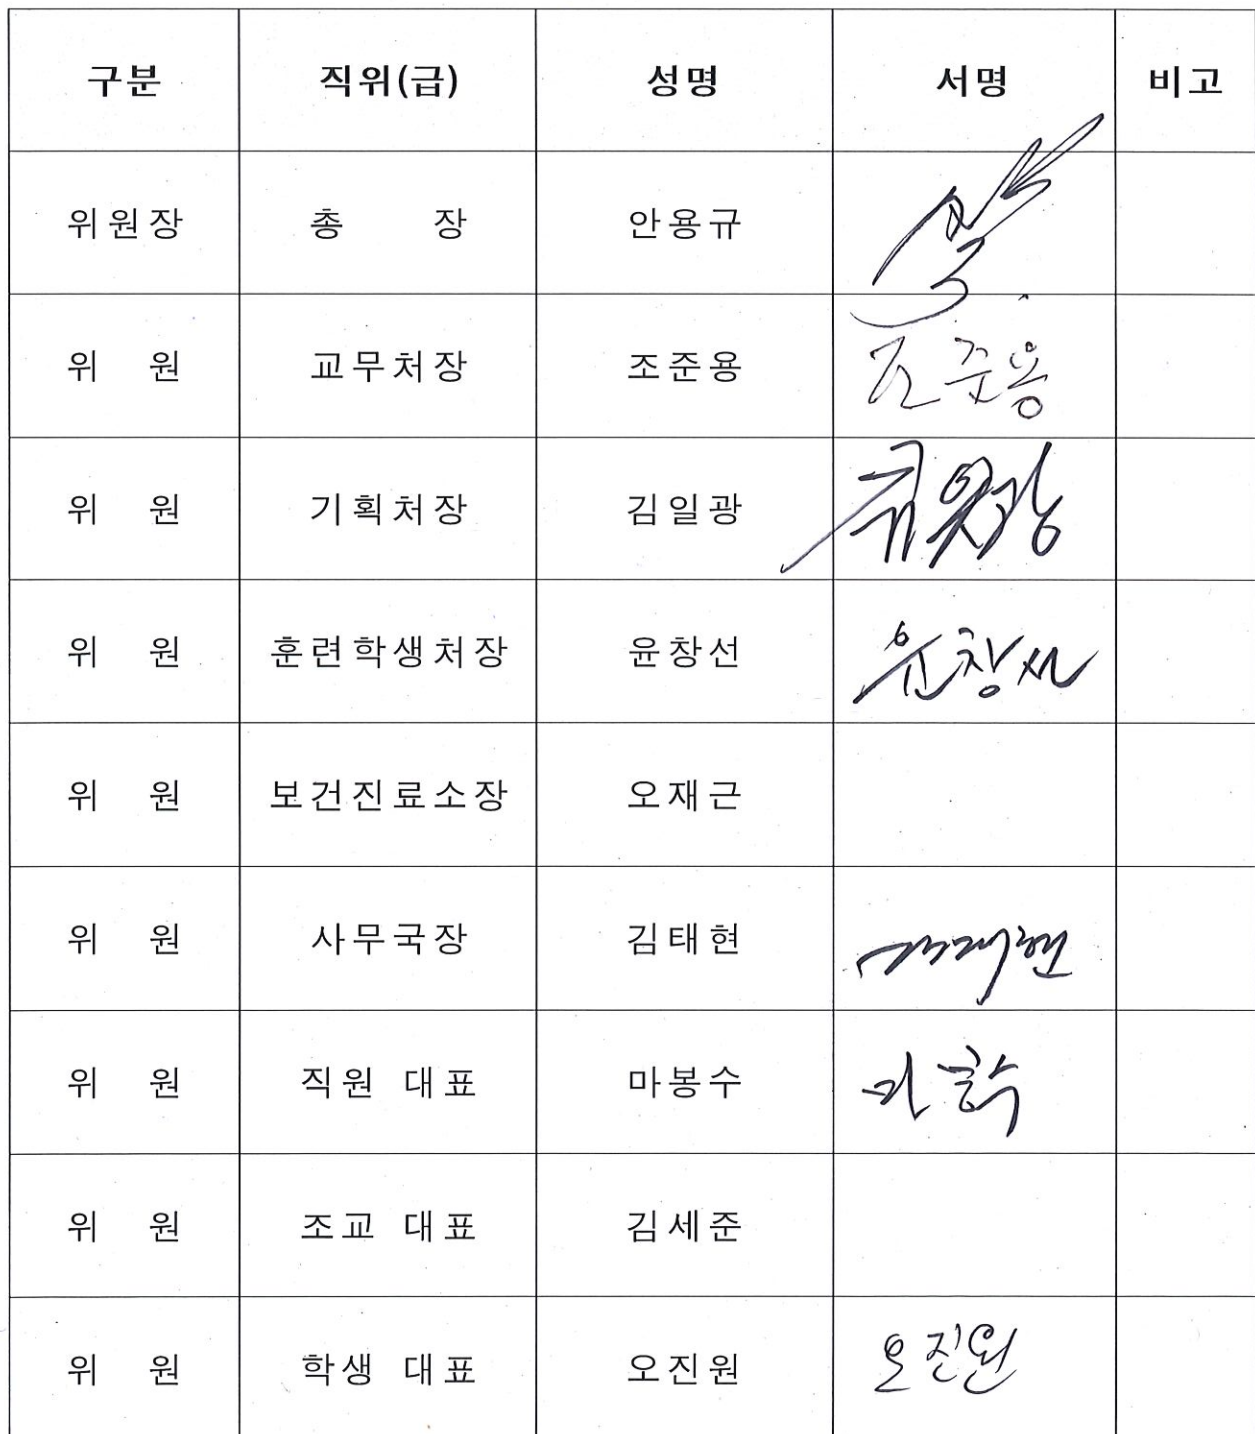 구분 직위(급) 성명 서명 비고
위원장 총 장 안용규
위 원 교무처장 조준용 조준용
위 원 기획처장 김일광 김일광
위 원 훈련학생처장 윤창선 윤창선
위 원 보건진료소장 오재근
위 원 사무국장 김태현 김태현
위 원 직원 대표 마봉수
위 원 조교 대표 김세준
위 원 학생 대표 오진원 오진원